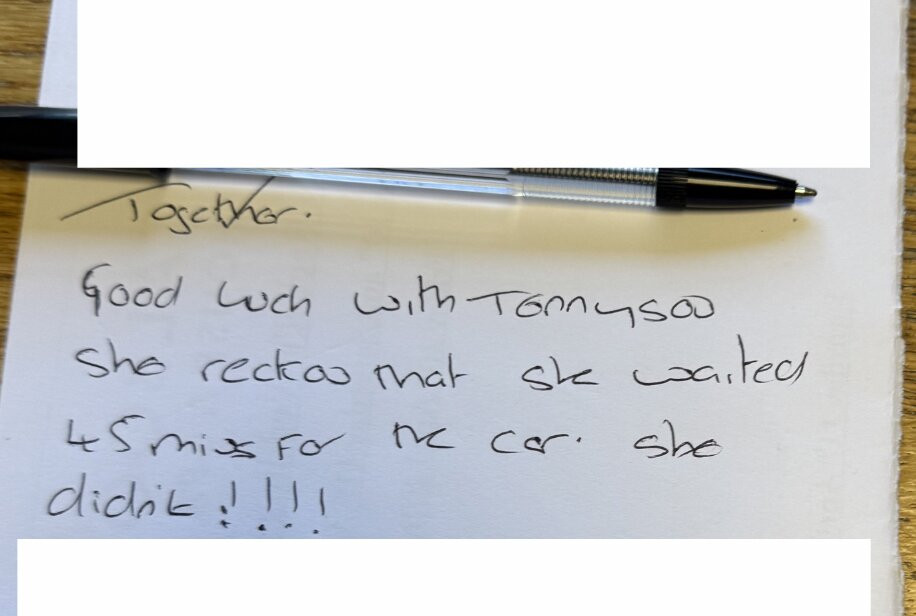 Together.
Good luck with Tennyson
She reckon that she waited
45 mins For the car. she
didn't !!!!